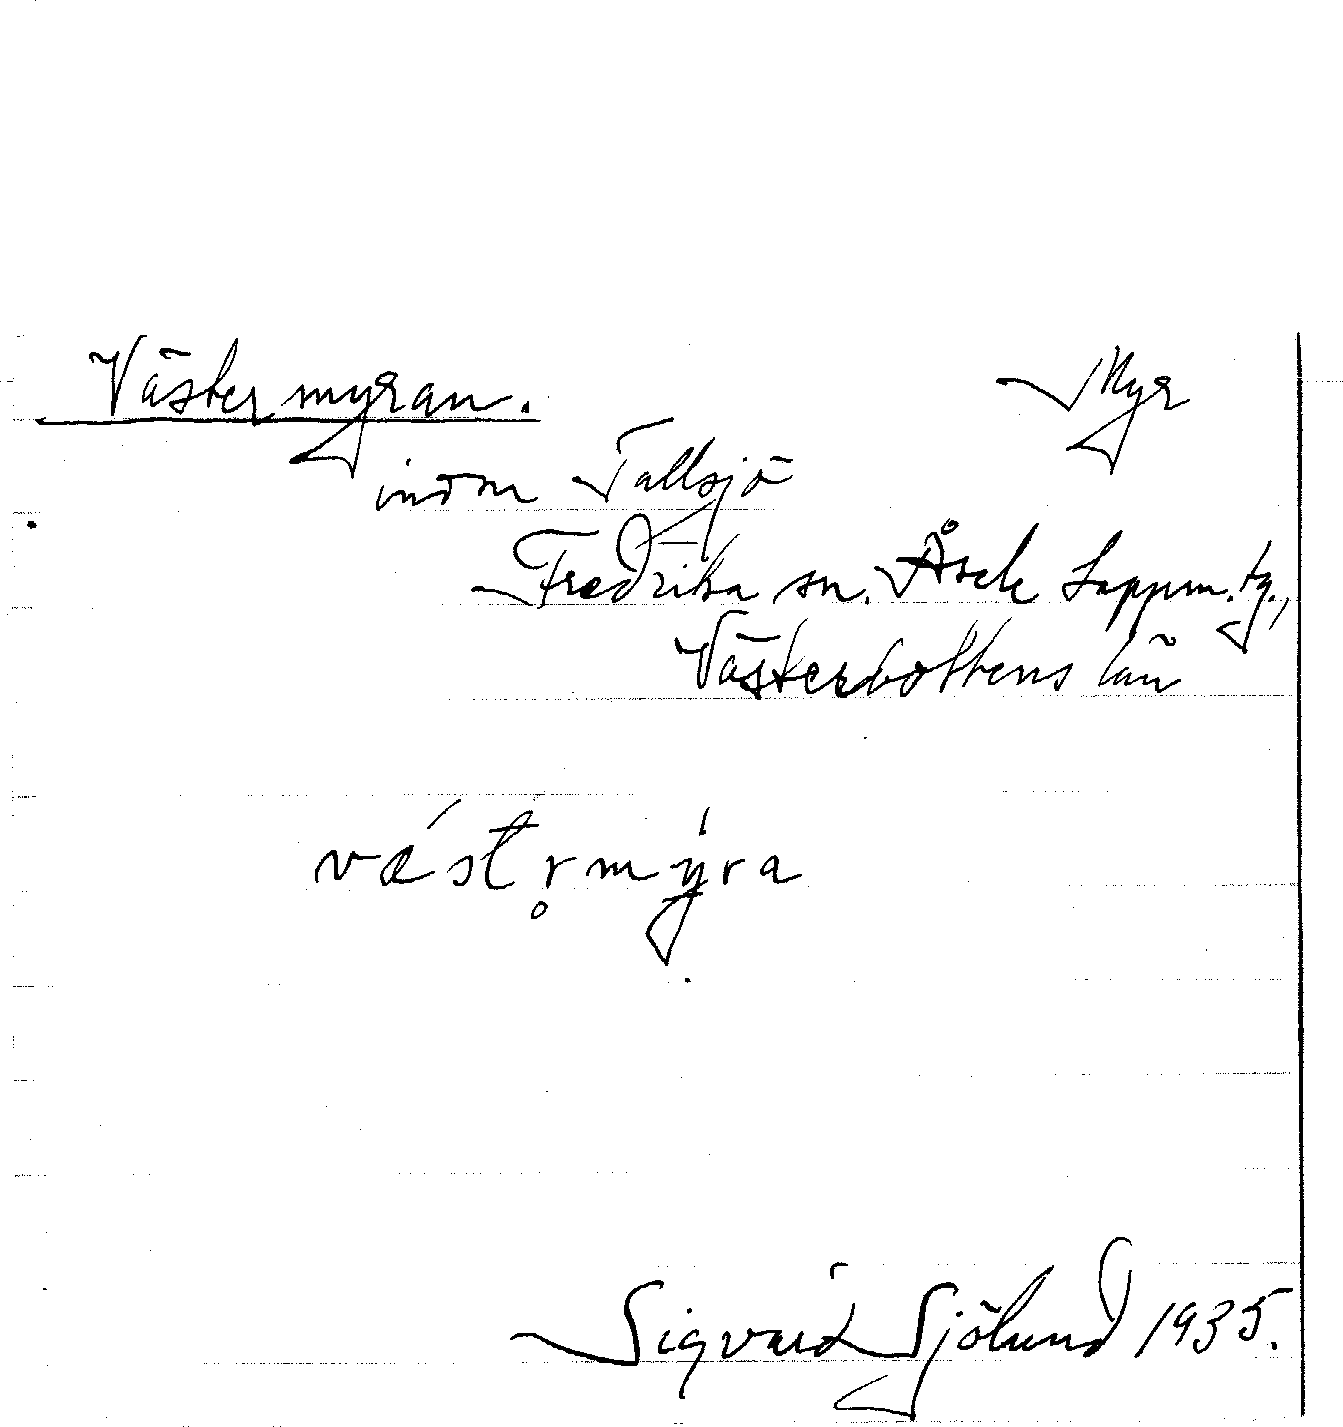 Västermyran. Myr
inom Tallsjö
Fredrika sn. Åsele Lappm. tg.,
Västerbottens län
væ´str̥mý̄ra
Sigvard Sjölund 1935.